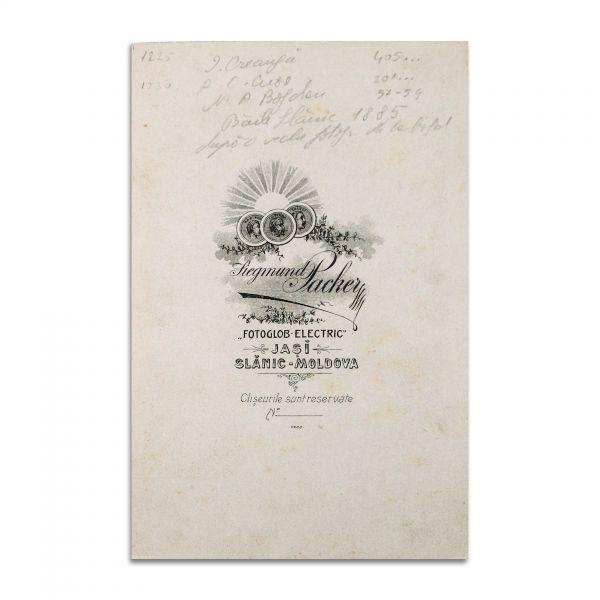 1225 I. Creangă 405...
A. C. Cuza 201...
N. A. Bogdan 57-59
Băile Slănic 1885
după o veche fotogr. de la
Siegmund Packer
„FOTOGLOB-ELECTRIC"
JAȘI
SLĂNIC-MOLDOVA
Clișeurile sunt reservate
No